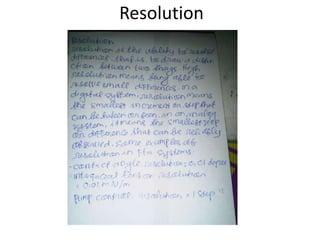 Resolution
Resolution
resolution is the ability to resolve
differences that is to draw a distin
ction between two things. High
resolution means being able to
resolve small differences. In a
digital system, resolution means
the smallest increment or step that
can be taken or seen. In an analog
system, it means the smallest step
or difference that can be reliably
observed. Some examples of
resolution in FTA systems
contact angle resolution: 0.01 degree
interfacial tension resolution
= 0.01 mN/m
Pump control resolution = 1 step